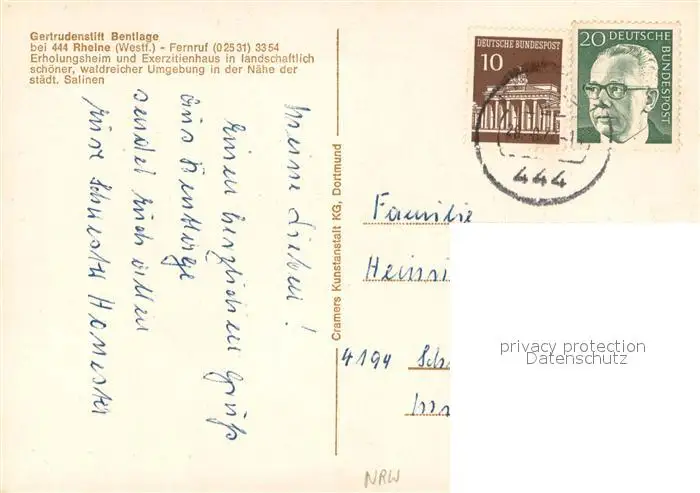 Gertrudenstift Bentlage
bei 444 Rheine (Westf.) - Fernruf (0 25 31) 33 54
Erholungsheim und Exerzitienhaus in landschaftlich
schöner, waldreicher Umgebung in der Nähe der
städt. Salinen
Meine Lieben!
Einen herzlichen Gruß
aus Bentlage
sendet Euch allen
Eure Schwester
Cramers Kunstanstalt KG, Dortmund
DEUTSCHE BUNDESPOST
10
20 DEUTSCHE
BUNDESPOST
444
Familie
Heinri
4194 Sch
privacy protection
Datenschutz
NRW